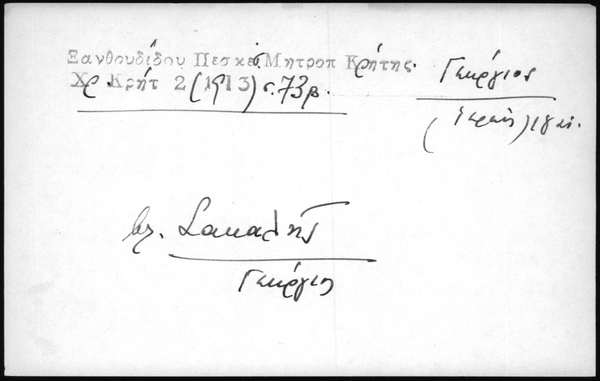 Ξανθουδίδου Πεσκέσ. Μητροπ Κρήτης.
Χρ. Κρήτ 2 (1913) σ. 73β.
Γεώργιος
(ιερεύς)
βλ. Σακαλῆς
Γεώργιος